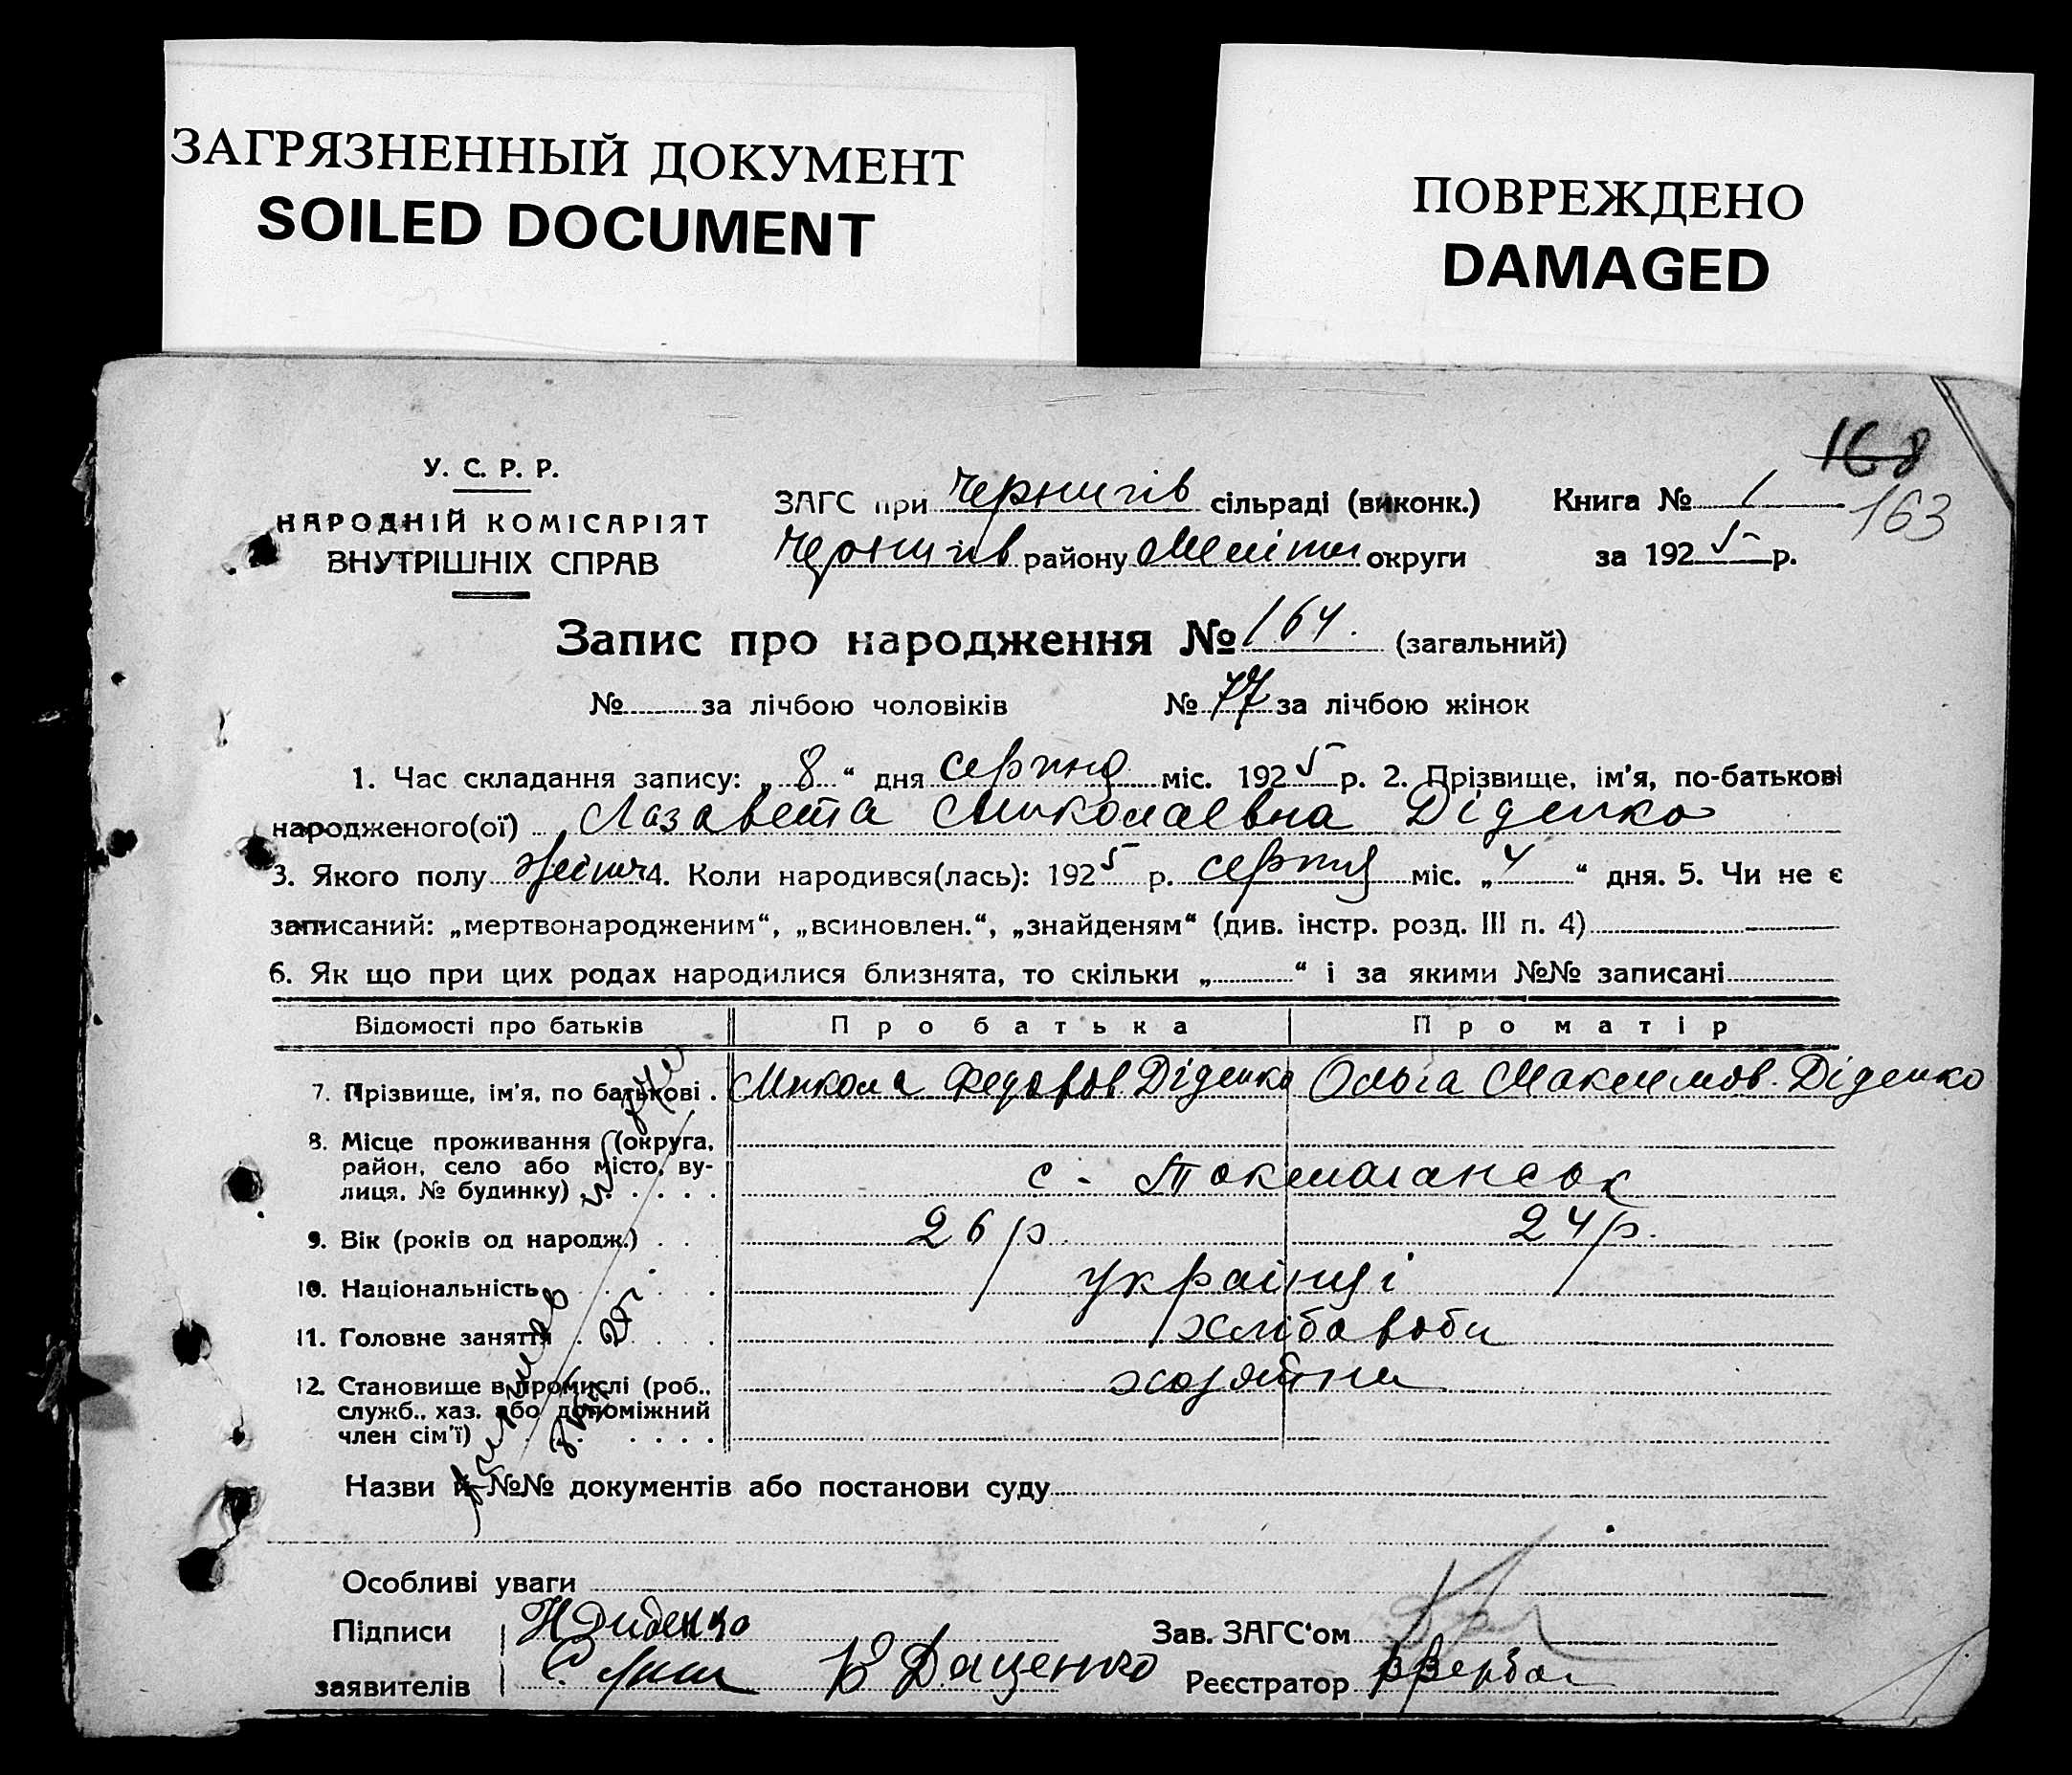 ЗАГРЯЗНЕННЫЙ ДОКУМЕНТ
SOILED DOCUMENT
ПОВРЕЖДЕНО
DAMAGED
168
163
У. С. Р. Р.
НАРОДНІЙ КОМІСАРІЯТ
ВНУТРІШНІХ СПРАВ
ЗАГС при Чернигів сільраді (виконк.)
Чернигів району Меліт округи
Книга № 1
за 1925 р.
Запис про народження № 164. (загальний)
№ за лічбою чоловіків № 77 за лічбою жінок
1. Час складання запису: „ 8 “ дня серпня міс. 1925 р. 2. Прізвище, ім'я, по-батькові
народженого(ої) Лазавета Миколаевна Діденко
3. Якого полу 4. Коли народився(лась): 1925 р. серпня міс. „ 4 “ дня. 5. Чи не є
записаний: „мертвонародженим“, „всиновлен.“, „знайденям“ (див. інстр. розд. III п. 4)
6. Як що при цих родах народилися близнята, то скільки „ “ і за якими №№ записані
Відомості про батьків Про батька Про матір
7. Прізвище, ім'я, по батькові . Микола Федоров Діденко Ольга Максимов. Діденко
8. Місце проживання (округа,
район, село або місто, ву-
лиця, № будинку) . . . . .
с -
9. Вік (років од народж.) . . 26 р 24 р.
10. Національність . . . . . українці
11. Головне заняття . . . . хлібороби
12. Становище в промислі (роб.,
служб., хаз. або допоміжний
член сім'ї) . . . . . . .
хозяїни
Назви й №№ документів або постанови суду
Особливі уваги
Підписи
заявителів
Н Диденко
В Даценко
Зав. ЗАГС'ом
Реєстратор